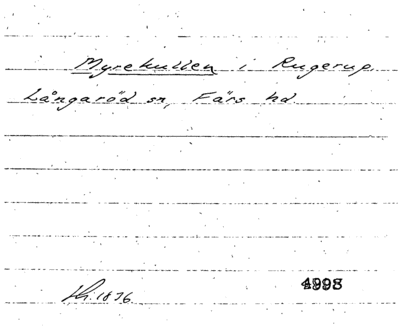 Myrekullen i Rugerup.
Långaröd sn, Färs hd
1836
4998